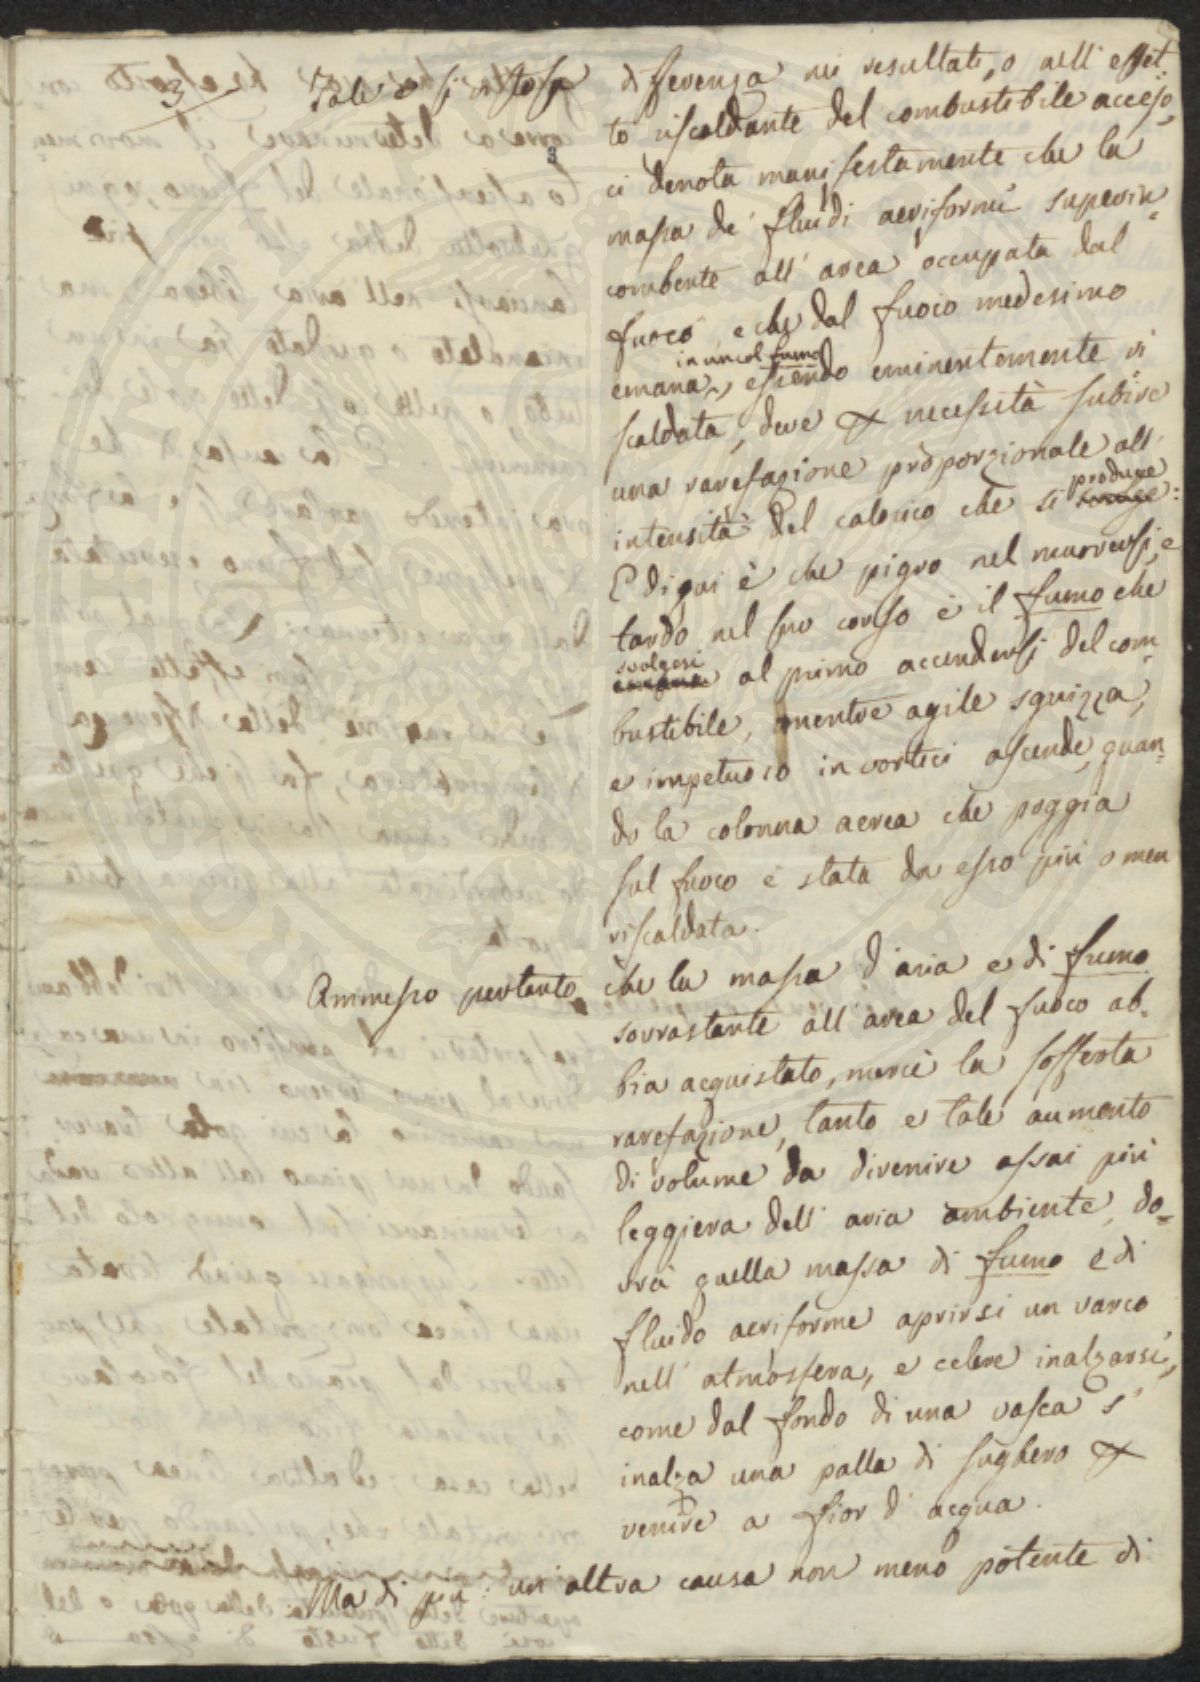 3
3
Tale o sì vistosa differenza nei resultati, o nell' effet-
to riscaldante del combustibile acceso,
ci denota manifestamente che la
massa de' fluidi aeriformi superin-
combente all' area occupata dal
fuoco, e che dal fuoco medesimo
in un col fumo
emana, essendo eminentemente ri
scaldata, deve per necessità subire
una rarefazione proporzionale all'
produce
intensità del calorico che si
E di qui è che pigro nel muoversi, e
tardo nel suo corso è il fumo che
svolgesi
al primo accendersi del com-
bustibile, mentre agile sguizza,
e impetuoso in vortici ascende, quan-
do la colonna aerea che poggia
sul fuoco è stata da esso più o men
riscaldata.
Ammesso pertanto che la massa d'aria e di fumo
sovrastante all' area del fuoco ab-
bia acquistato, mercè la sofferta
rarefazione, tanto e tale aumento
di volume da divenire assai più
leggiera dell' aria ambiente, do-
vrà quella massa di fumo e di
fluido aeriforme aprirsi un varco
nell' atmosfera, e celere inalzarsi,
come dal fondo di una vasca s'
inalza una palla di sughero per
venire a fior d' acqua.
Ma di più: un altra causa non meno potente di